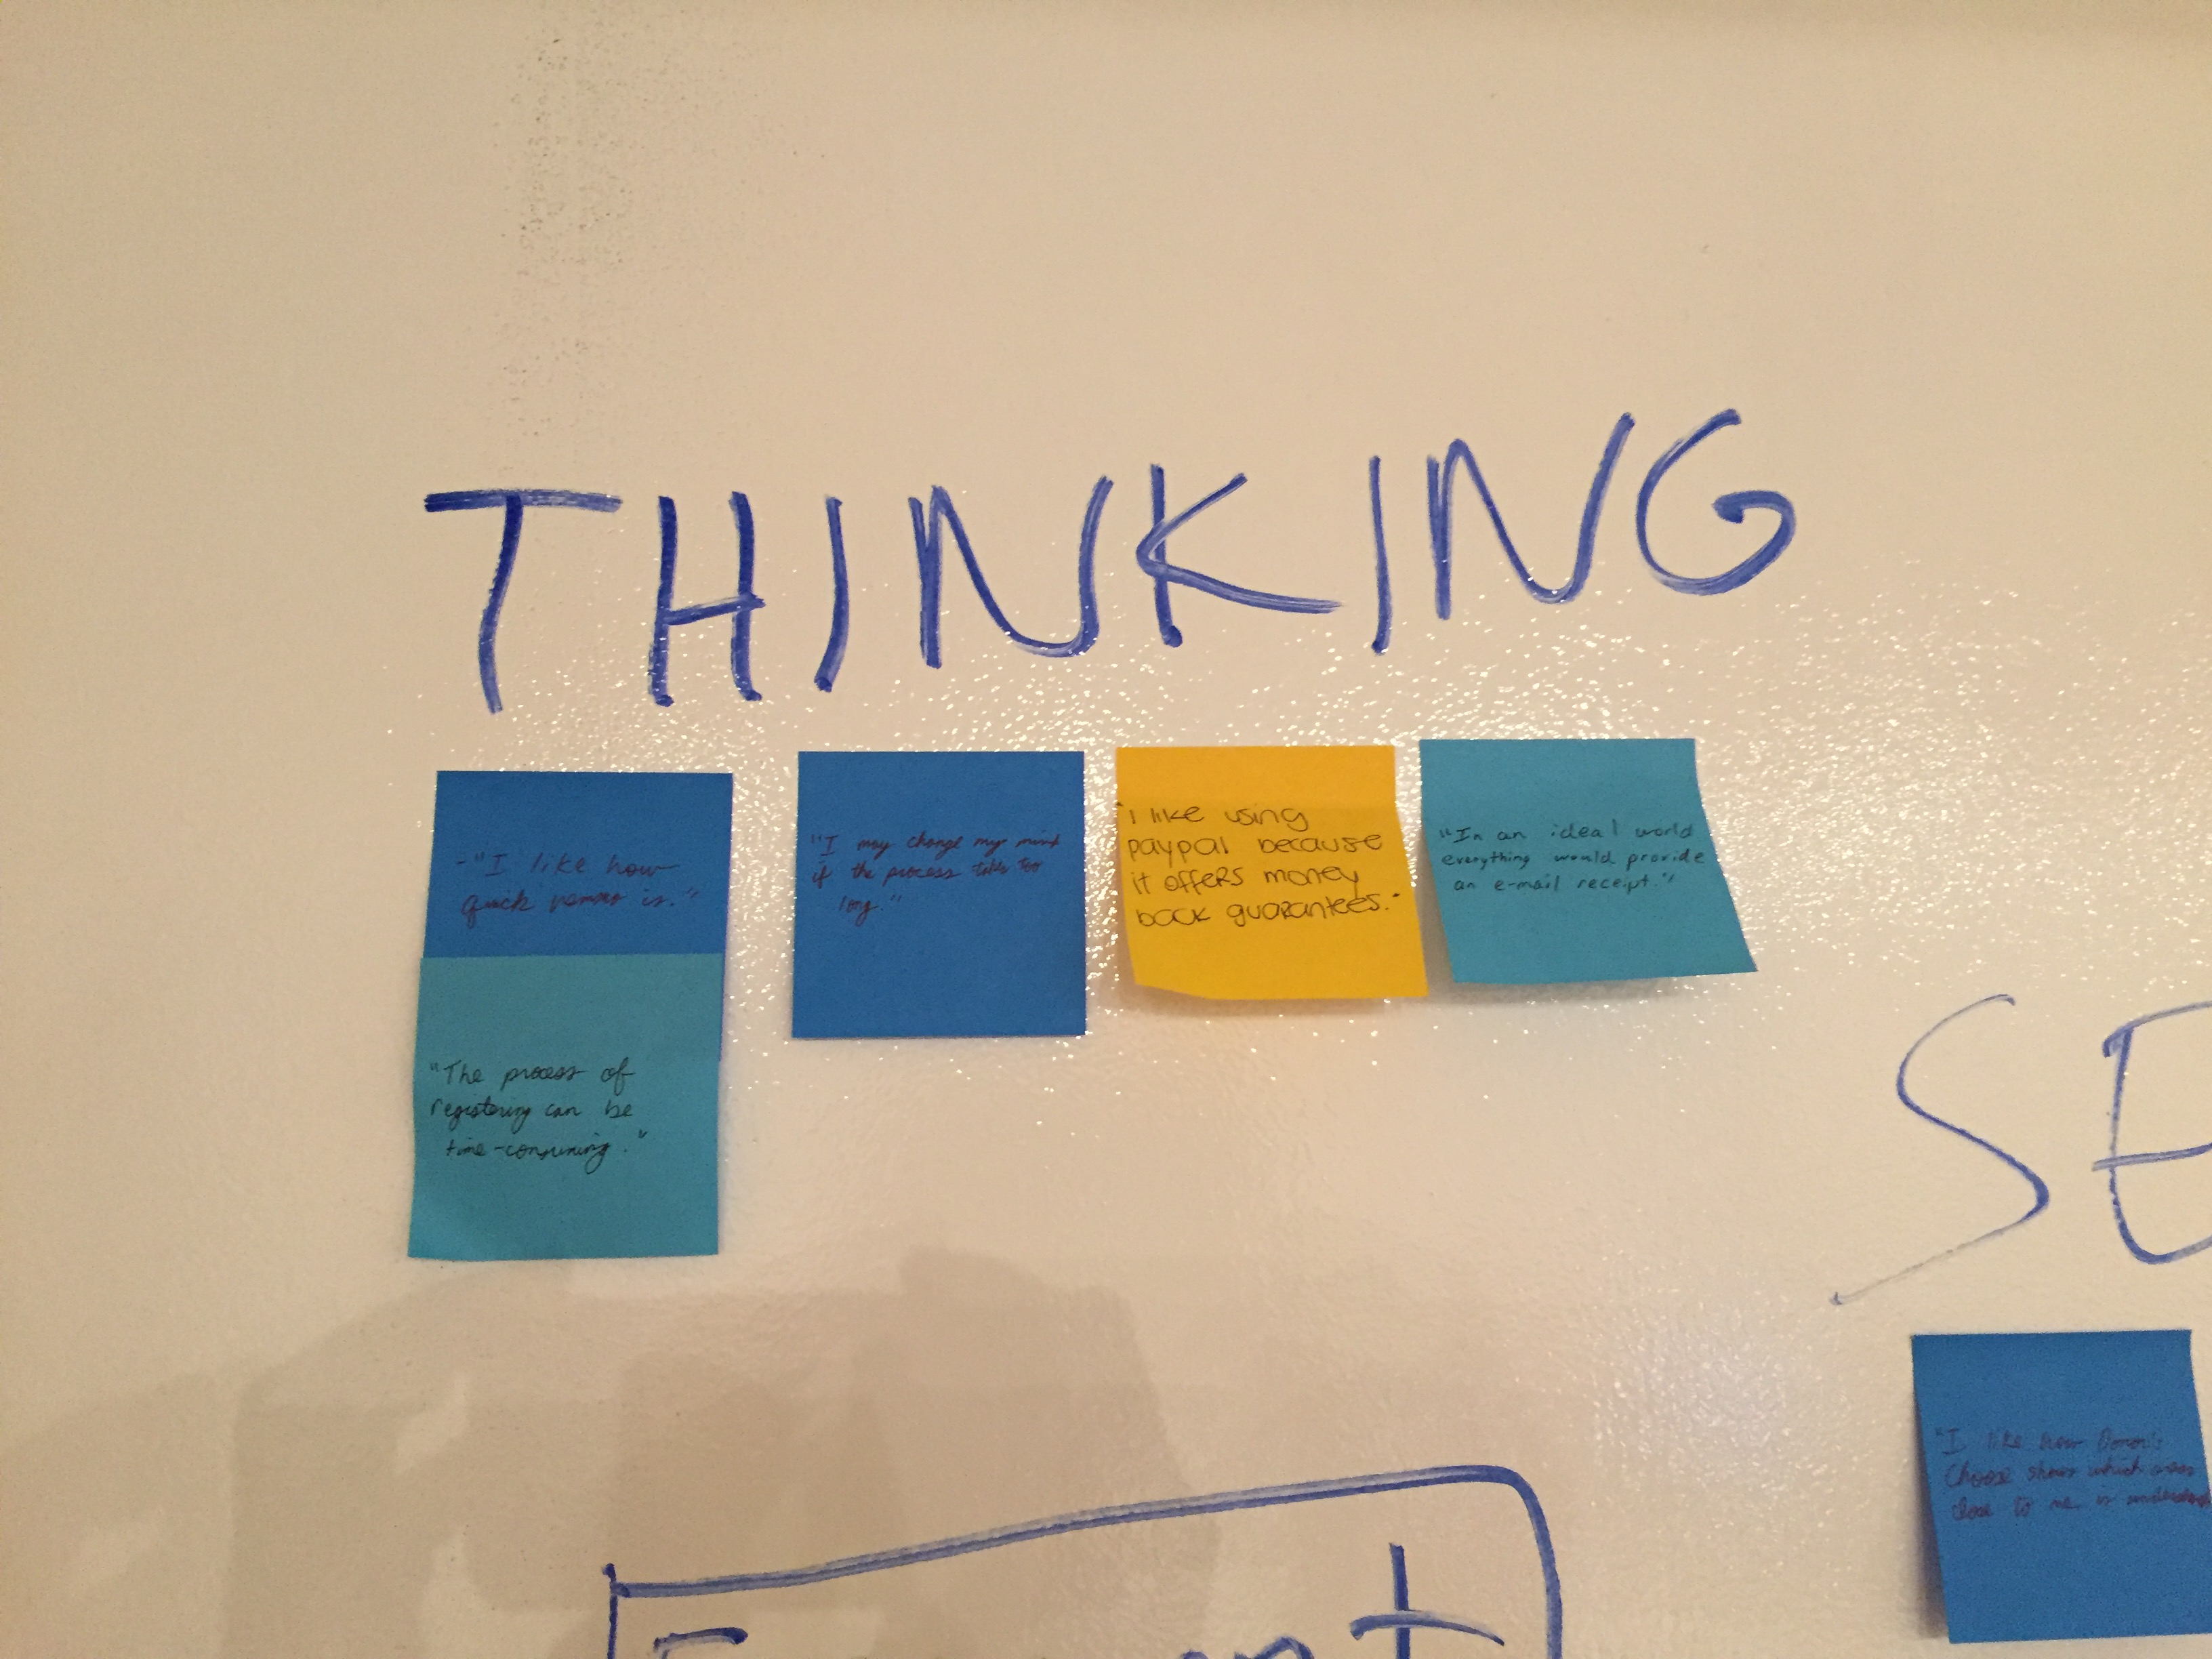 THINKING
-"I like how
quick venmo is."
"The process of
registering can be
time-consuming."
"I may change my mind
if the process takes too
long."
"I like using
paypal because
it offers money
back guarantees."
"In an ideal world
everything would provide
an e-mail receipt."
SE
"I like how Donor's
Choose shows which areas
close to me is